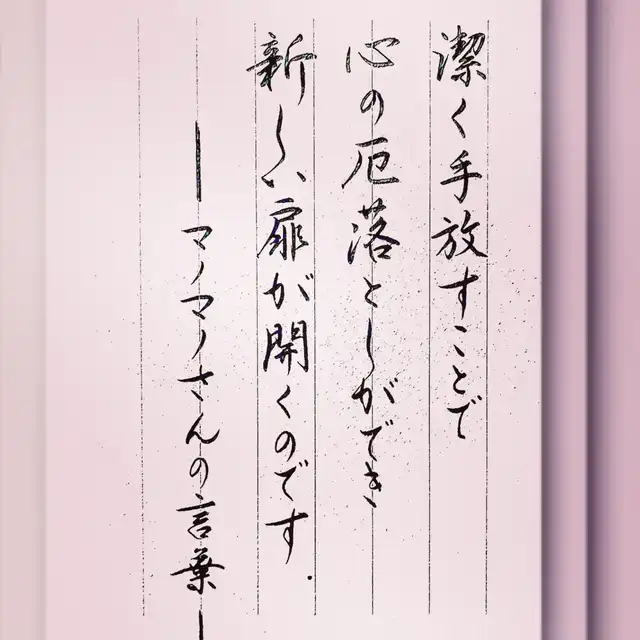 潔く手放すことで
心の厄落としができ
新しい扉が開くのです.
―マノマノさんの言葉―